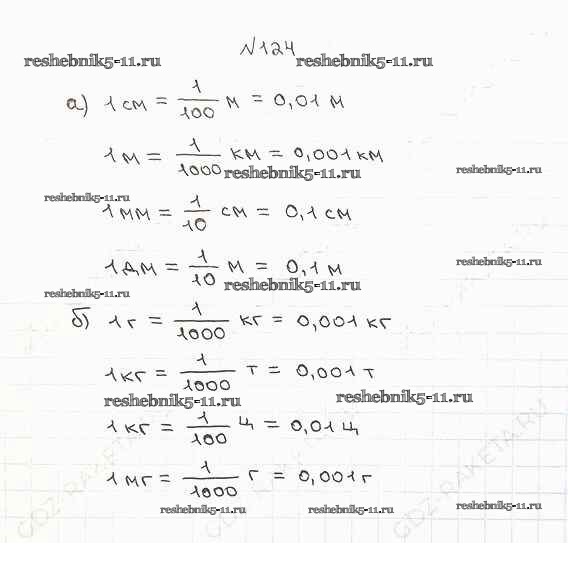 №124
reshebnik5-11.ru reshebnik5-11.ru
а) 1 см = 1/100 м = 0,01 м
1 м = 1/1000 км = 0,001 км
reshebnik5-11.ru reshebnik5-11.ru
reshebnik5-11.ru
1 мм = 1/10 см = 0,1 см
1 дм = 1/10 м = 0,1 м
reshebnik5-11.ru
reshebnik5-11.ru reshebnik5-11.ru
б) 1 г = 1/1000 кг = 0,001 кг
1 кг = 1/1000 т = 0,001 т
reshebnik5-11.ru reshebnik5-11.ru
1 кг = 1/100 ц = 0,01 ц
1 мг = 1/1000 г = 0,001 г
reshebnik5-11.ru reshebnik5-11.ru reshebnik5-11.ru
GDZ-RAKETA.RU GDZ-RAKETA.RU